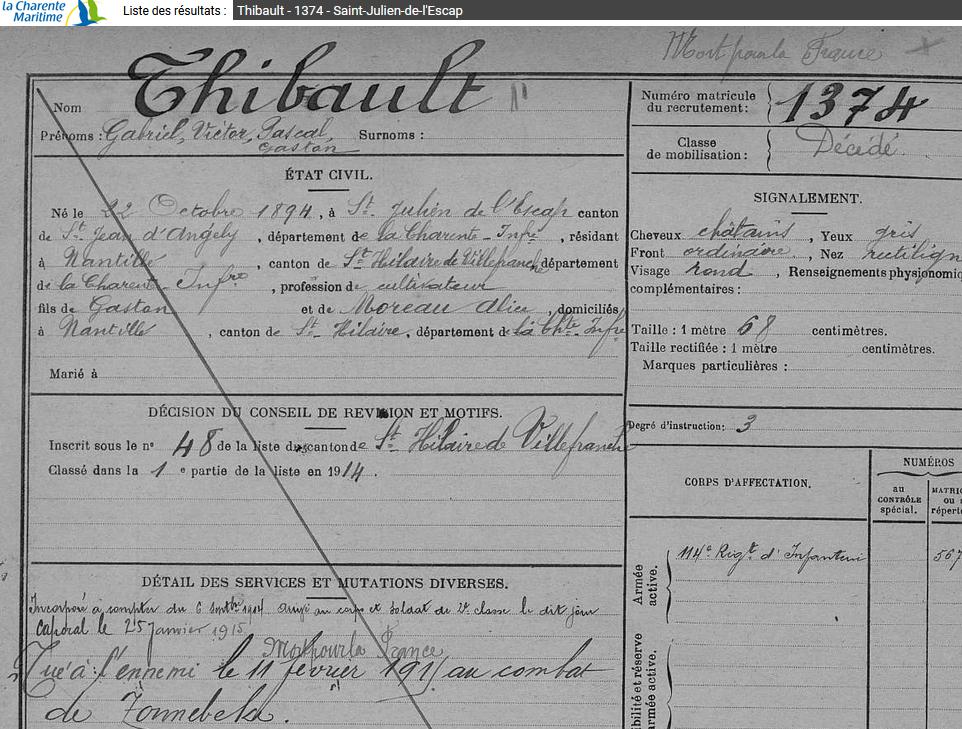 la Charente
Maritime
Liste des résultats :
Thibault - 1374 - Saint-Julien-de-l'Escap
Mort pour la France
Nom Thibault
Prénoms : Gabriel, Victor, Pascal, Surnoms :
Gaston
Numéro matricule
du recrutement: 1374
Classe
de mobilisation: Décédé
ÉTAT CIVIL.
Né le 22 Octobre 1894, à St. Julien de l'Escap canton
de St Jean d'Angély, département de la Charente-Infre, résidant
à Nantillé, canton de St Hilaire de Villefranche département
de la Charente-Infre, profession de cultivateur
fils de Gaston et de Moreau Alice, domiciliés
à Nantillé, canton de St- Hilaire, département de la Chte Infre
Marié à
SIGNALEMENT.
Cheveux châtains, Yeux gris
Front ordinaire, Nez rectilign
Visage rond, Renseignements physionomiq
complémentaires :
Taille : 1 mètre 68 centimètres.
Taille rectifiée : 1 mètre centimètres.
Marques particulières :
Degré d'instruction: 3
DÉCISION DU CONSEIL DE REVISION ET MOTIFS.
Inscrit sous le no 48 de la liste du canton de St Hilaire de Villefranche
Classé dans la 1 e partie de la liste en 1914.
CORPS D'AFFECTATION.
NUMÉROS
au
CONTRÔLE
spécial.
MATRIC
ou
réperto
Armée
active.
114e Régt d'Infanterie
567
DÉTAIL DES SERVICES ET MUTATIONS DIVERSES.
Incorporé à compter du 6 septbre 1914 arrivé au corps et soldat de 2e classe le dit jour
Caporal le 25 janvier 1915
Mort pour la France
Tué à l'ennemi le 11 février 1915 au combat
de Zonnebeke.
ibilité et réserve
armée active.